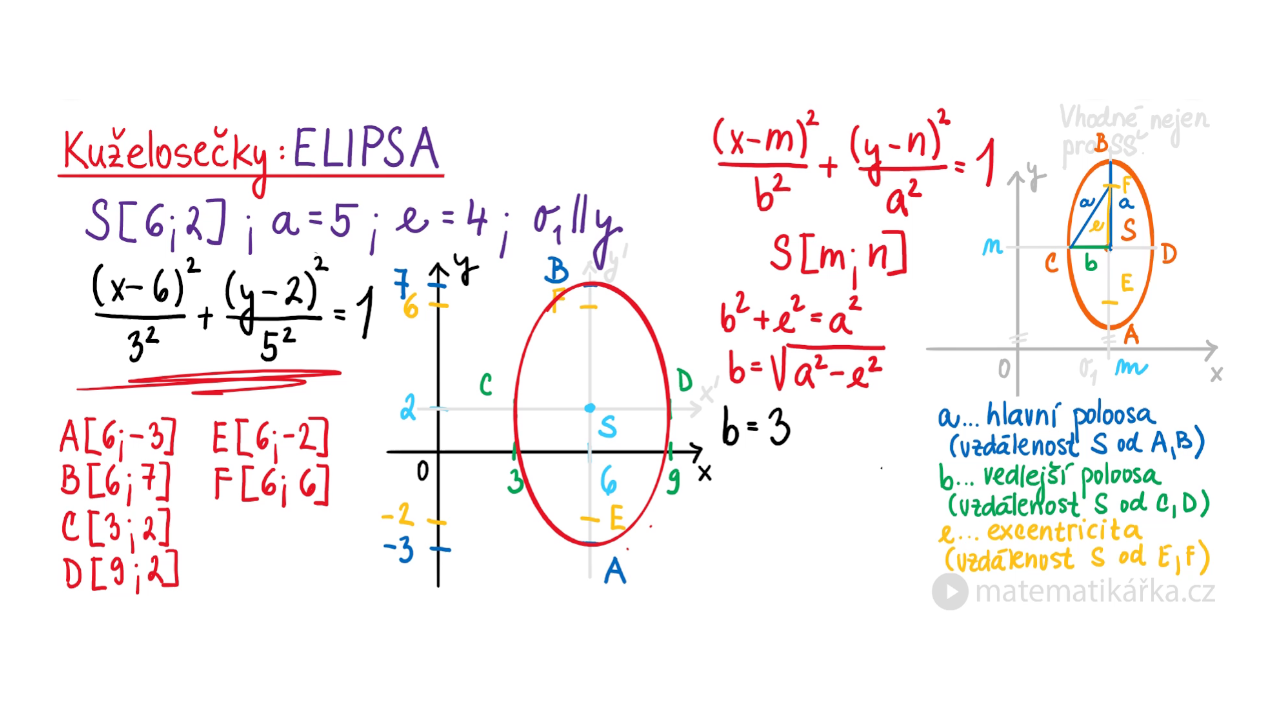 Kuželosečky: ELIPSA
S[6;2] ; a=5 ; e=4 ; o₁ ∥ y
(x-6)²/3² + (y-2)²/5² = 1
A[6;-3] E[6;-2]
B[6;7] F[6;6]
C[3;2]
D[9;2]
y
y'
7
B
6
F
C
D
x'
2
S
0
3
6
9
x
-2
E
-3
A
(x-m)²/b² + (y-n)²/a² = 1
S[m;n]
b²+e²=a²
b=√(a²-e²)
b=3
Vhodné nejen
pro SŠ.
B
y
F
a
a
e
S
m
C
b
D
E
A
0
o₁
m
x
a... hlavní poloosa
(vzdálenost S od A,B)
b... vedlejší poloosa
(vzdálenost S od C,D)
e... excentricita
(vzdálenost S od E,F)
matematikářka.cz